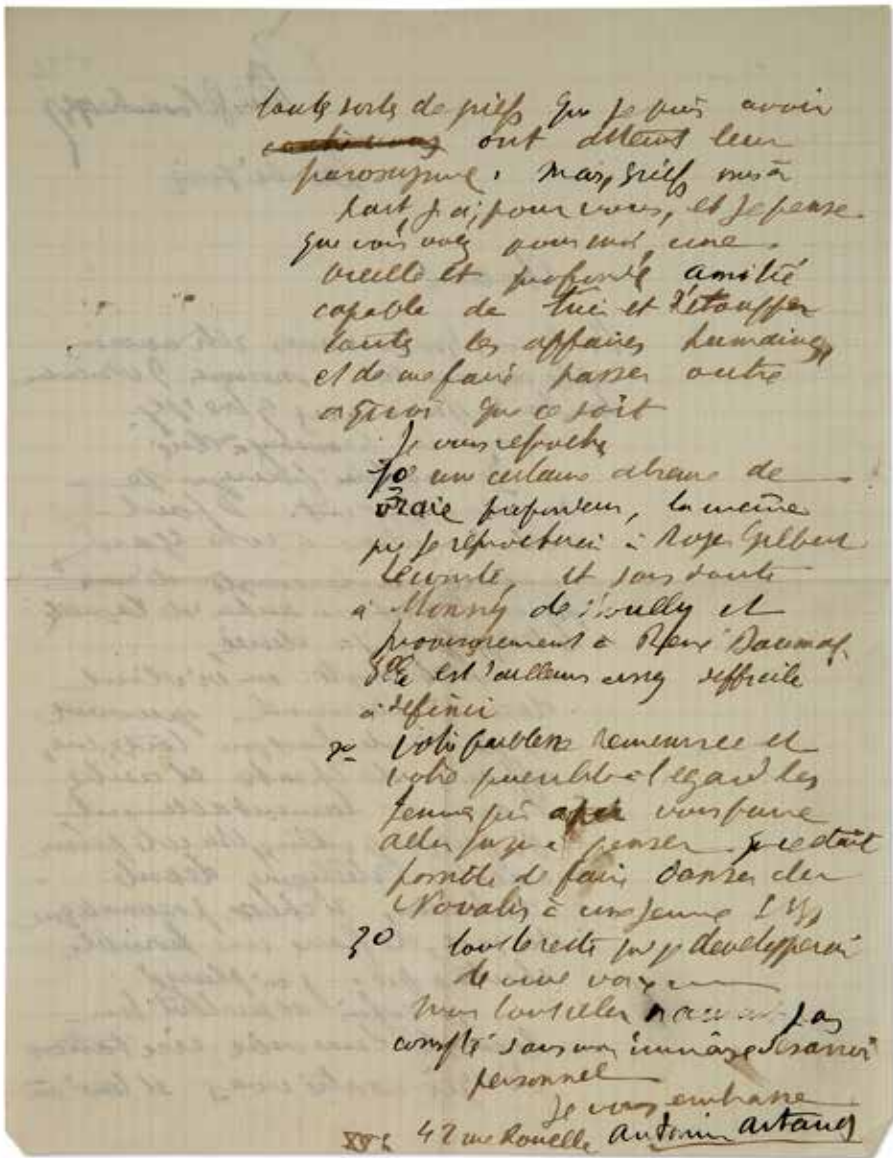 toute sorte de griefs que je puis avoir
contre vous ont atteint leur
paroxysme. Mais, griefs mis à
part, j'ai pour vous, et je pense
que vous avez pour moi, une
vieille et profonde amitié
capable de tuer et d'étouffer
toutes les affaires humaines
et de me faire passer outre
à quoi que ce soit
Je vous reproche
1o une certaine absence de
vraie profondeur, la même
que je reprocherai à Roger Gilbert
Lecomte, et sans doute
à Monny de Boully et
provisoirement à René Daumal.
Elle est d'ailleurs assez difficile
à définir
2o votre faiblesse
votre puérilité à l'égard des
femmes qui a pu vous faire
aller jusqu'à penser qu'il était
possible de faire danser du
Novalis à une jeune
3o tout le reste que je développerai
de vive voix
mais tout cela n'aurait pas
compté sans mon immense désarroi
personnel
Je vous embrasse
42 rue Rouelle Antonin Artaud
XVe